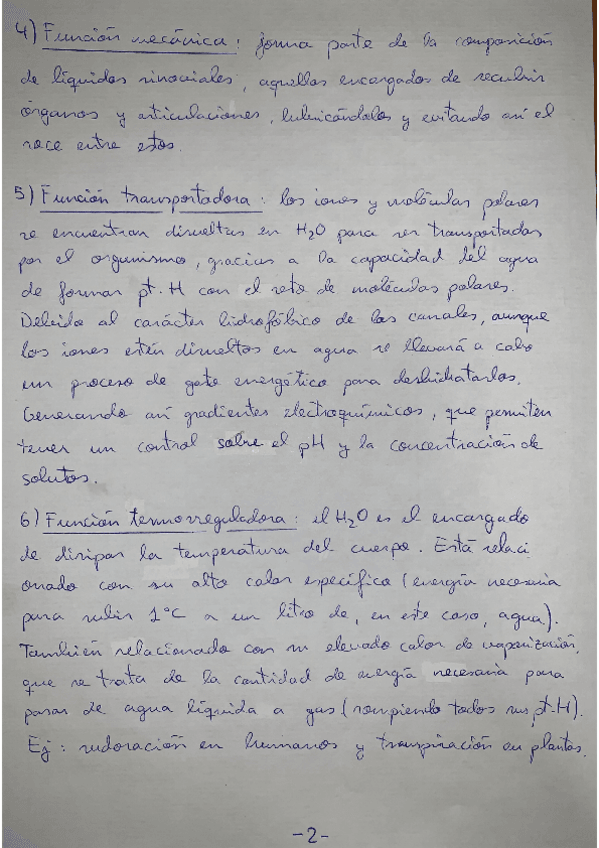 4) Función mecánica: forma parte de la composición
de líquidos sinoviales, aquellos encargados de recubrir
órganos y articulaciones, lubricándolos y evitando así el
roce entre estos.
5) Función transportadora: los iones y moléculas polares
se encuentran disueltas en H2O para ser transportadas
por el organismo, gracias a la capacidad del agua
de formar pt.H con el resto de moléculas polares.
Debido al carácter hidrofóbico de los canales, aunque
los iones estén disueltos en agua se llevará a cabo
un proceso de gasto energético para deshidratarlos.
Generando así gradientes electroquímicos, que permiten
tener un control sobre el pH y la concentración de
solutos.
6) Función termorreguladora: el H2O es el encargado
de disipar la temperatura del cuerpo. Está relaci
onado con su alto calor específico (energía necesaria
para subir 1°C a un litro de, en este caso, agua).
También relacionado con su elevado calor de vaporización,
que se trata de la cantidad de energía necesaria para
pasar de agua líquida a gas (rompiendo todos sus pt.H).
Ej: sudoración en humanos y transpiración en plantas.
-2-